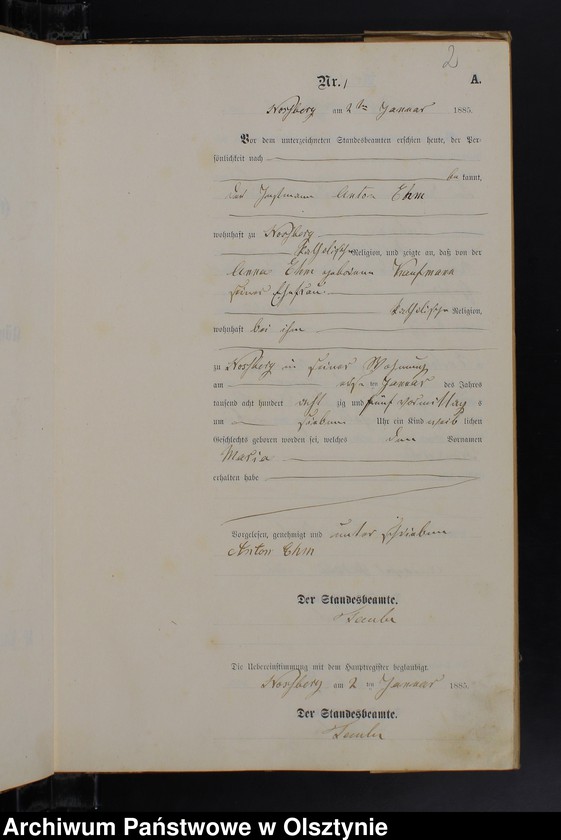 2
Nr. 1
A.
Noßberg am 2ten Januar 1885.
Vor dem unterzeichneten Standesbeamten erschien heute, der Per-
sönlichkeit nach
be kannt,
Anton Ehm
wohnhaft zu Noßberg
katholischer Religion, und zeigte an, daß von der
Anna Ehm geborenen Kaufmann
seiner Ehefrau
katholischer Religion,
wohnhaft bei ihm
zu Noßberg in seiner Wohnung
am ersten Januar des Jahres
tausend acht hundert acht zig und fünf vormittag s
um sieben Uhr ein Kind weib lichen
Geschlechts geboren worden sei, welches den Vornamen
Maria
erhalten habe
Vorgelesen, genehmigt und unterschrieben
Anton Ehm
Der Standesbeamte.
Die Uebereinstimmung mit dem Hauptregister beglaubigt.
Noßberg am 2 ten Januar 1885.
Der Standesbeamte.
Archiwum Państwowe w Olsztynie